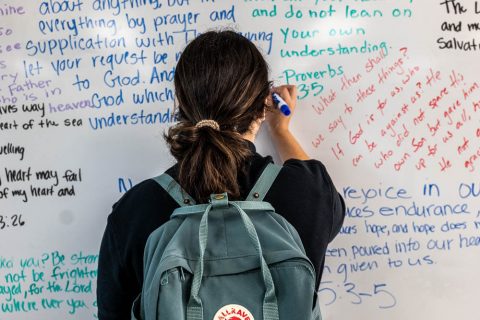 about anything, but in
everything by prayer and
supplication with
let your request be
to God. And
God which
understanding
and do not lean on
your own
understanding.
Proverbs
3:5
The Lor
and m
Salvati
Father
who is in
heaven
ves way
heart of the sea
welling
heart may fail
of my heart and
3:26
What then shall
we say to these things?
If God is for us, who can
be against us? He
who did not spare his
own Son but gave him
up for us all, h
rejoice in ou
uces endurance,
uces hope, and hope does n
been poured into our hea
given to us.
5:3-5
you? Be stro
not be frighte
ayed, for the Lord
where ever yo
FJÄLLRÄVEN